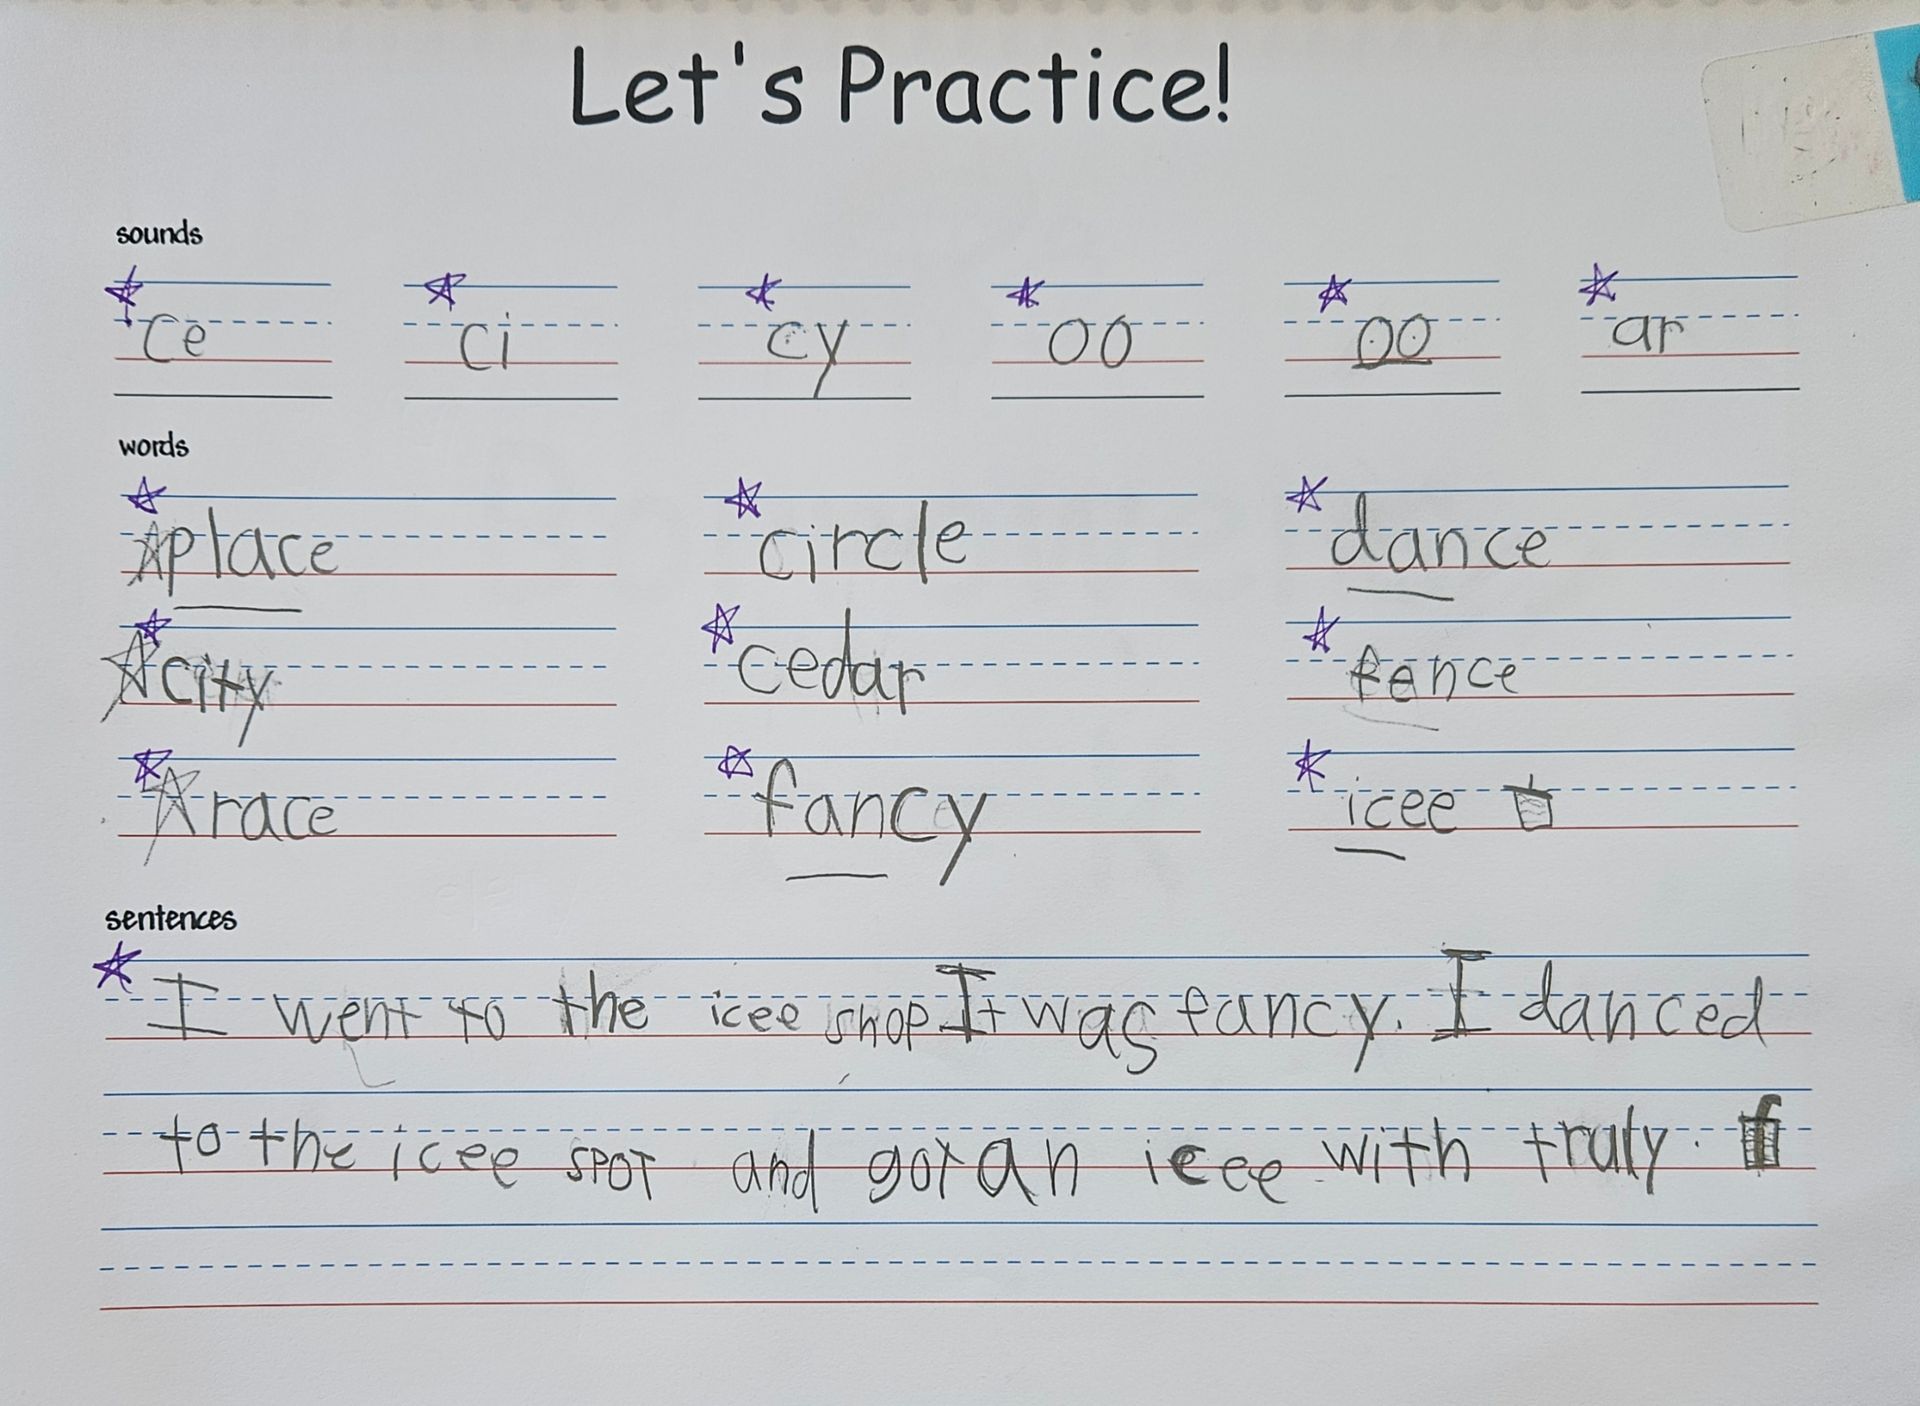 Let's Practice!
sounds
ce ci cy oo oo ar
words
place circle dance
city cedar fence
race fancy icee
sentences
I went to the icee shop It was fancy. I danced
to the icee SPOT and got an icee with truly.